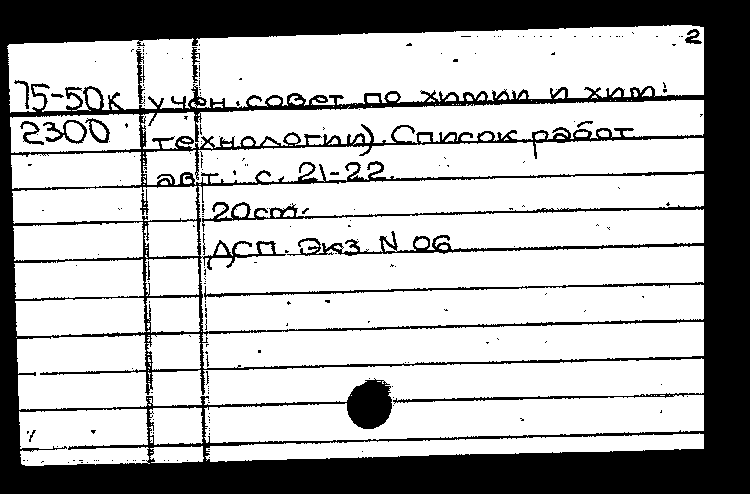 2
75-50к учен. совет по химии и хим.
2300 технологии). Список работ
авт.: с. 21-22.
20см.
ДСП. Экз N 06